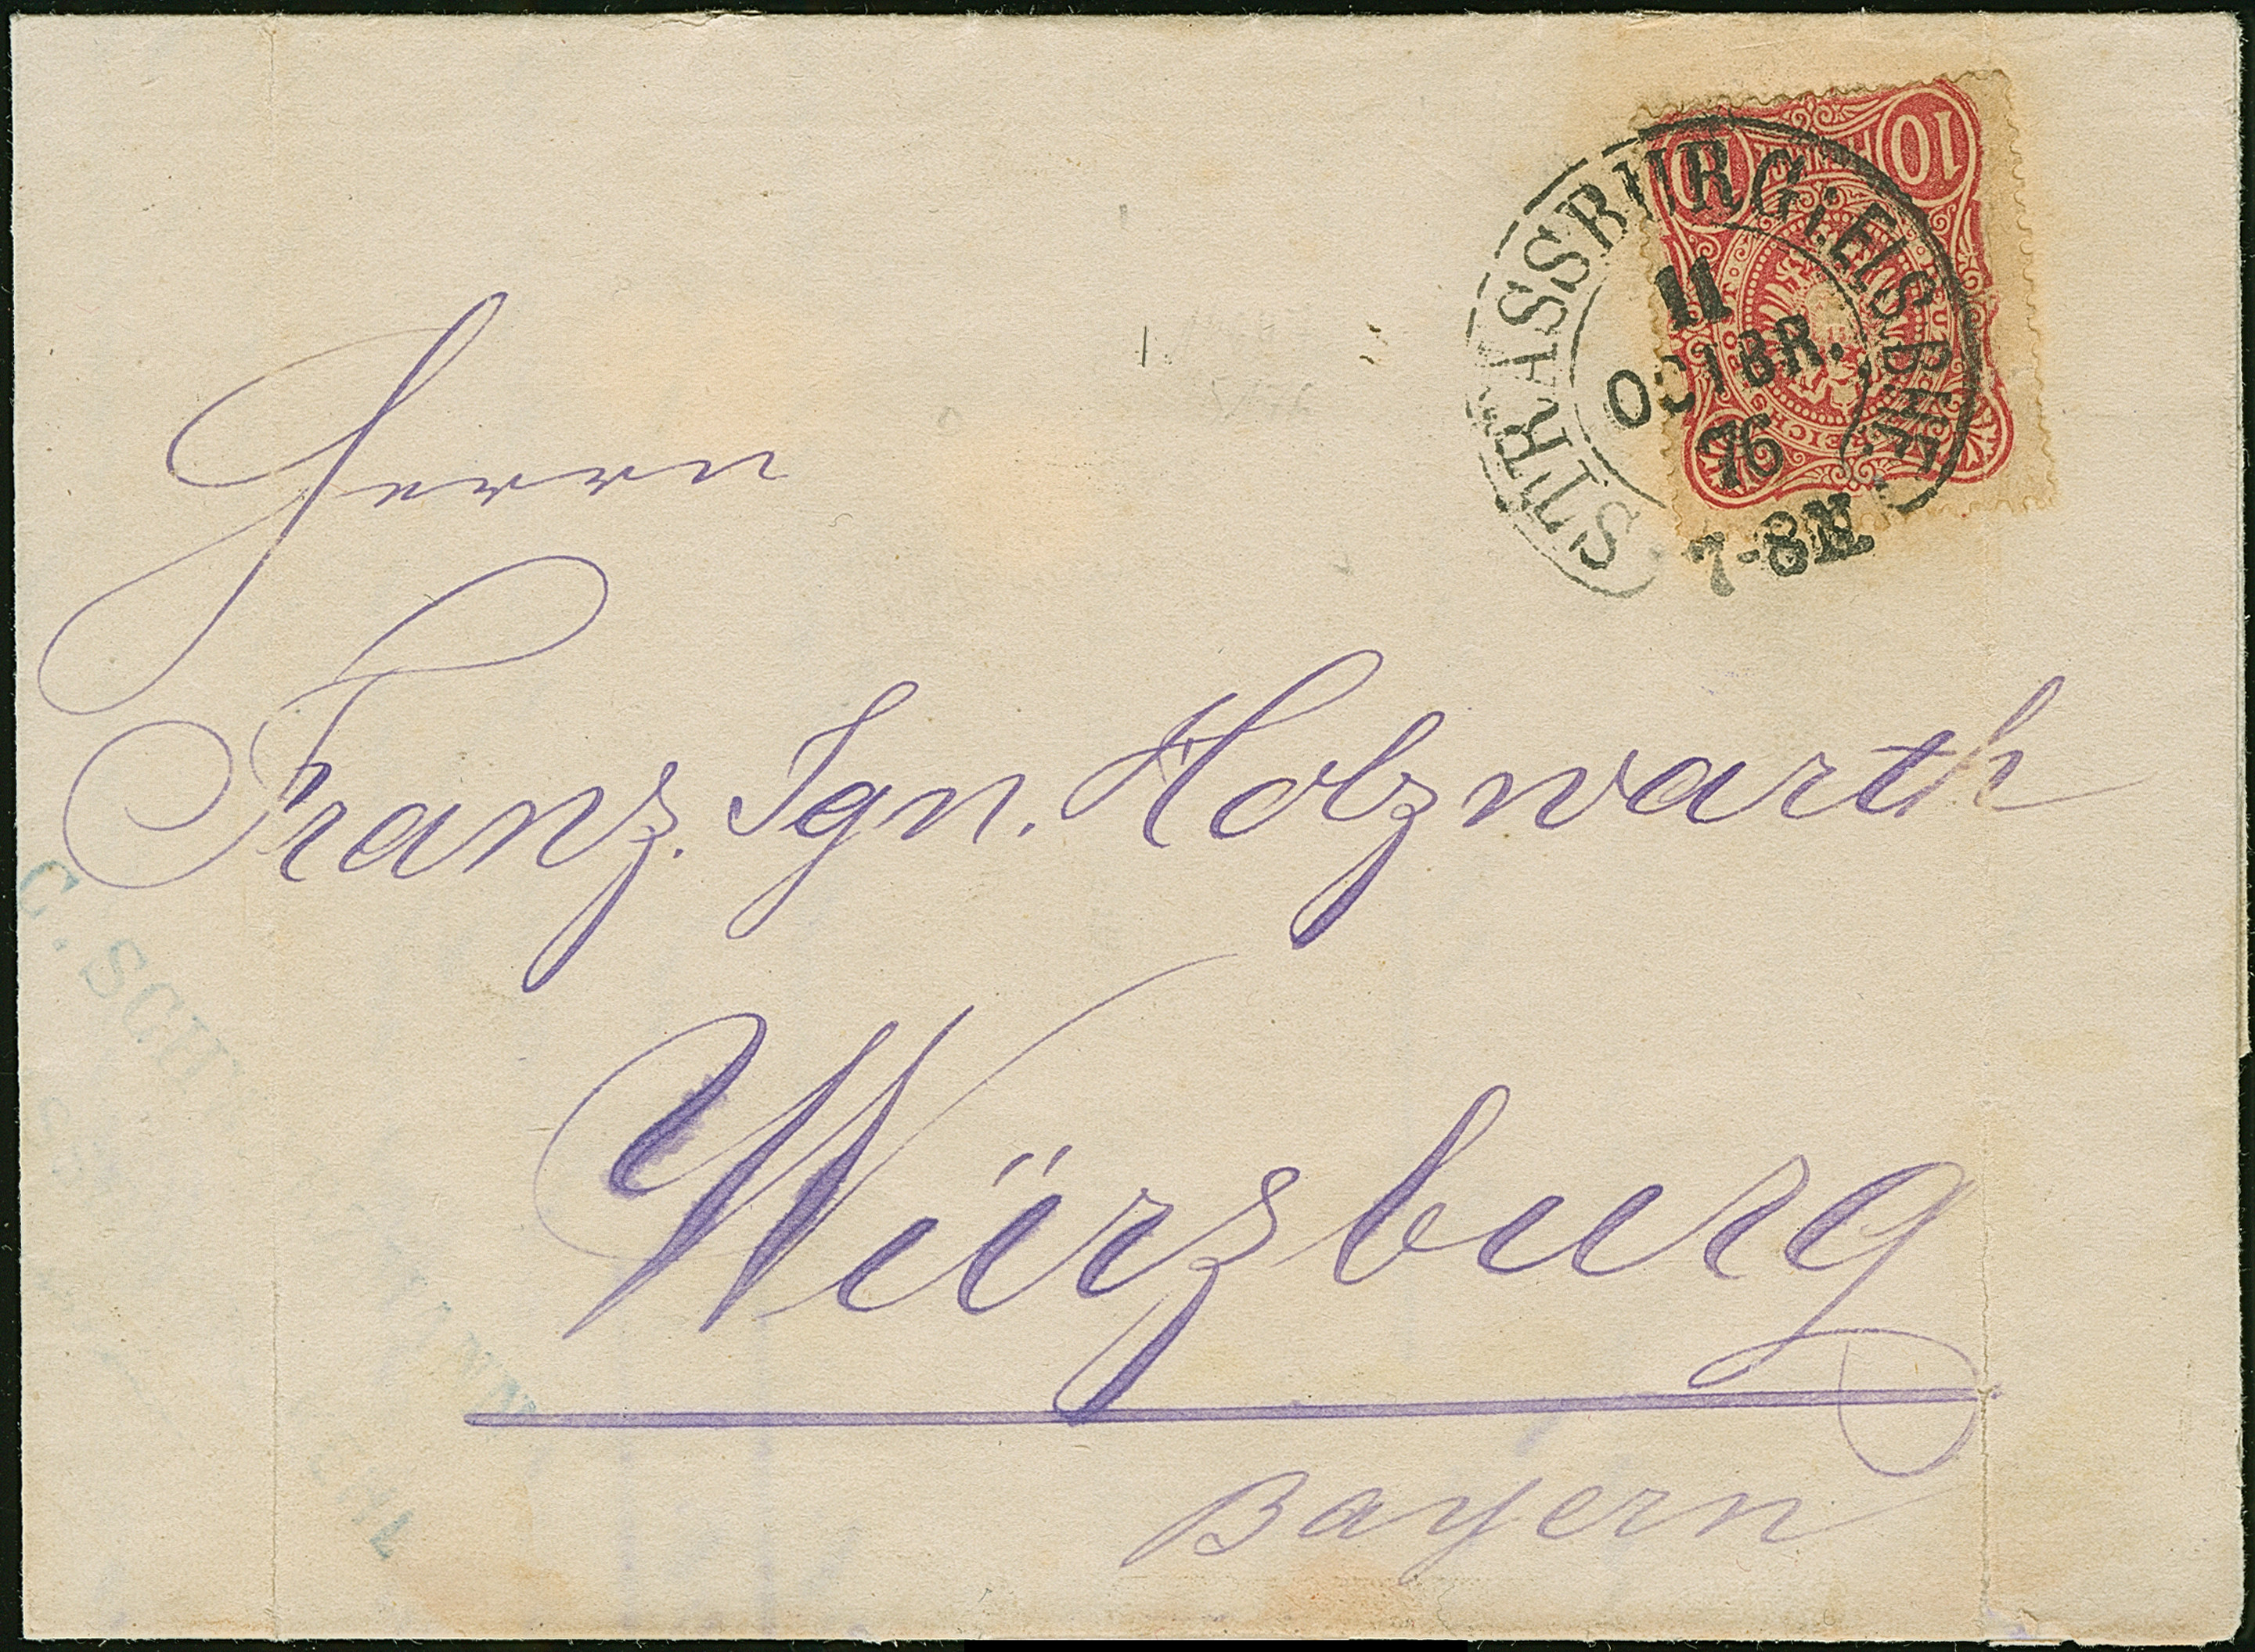 10
STRASSBURG i. ELS. BHF.
11
OCTBR.
76
7-8 N
Herrn
Franz Ign. Holzwarth
Würzburg
Bayern
C. SCH